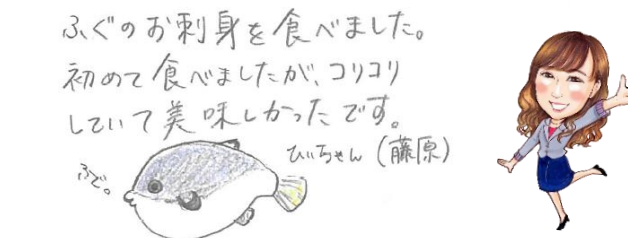 ふぐのお刺身を食べました。
初めて食べましたが、コリコリ
していて美味しかったです。
ひぃちゃん（藤原）
ふぐ。